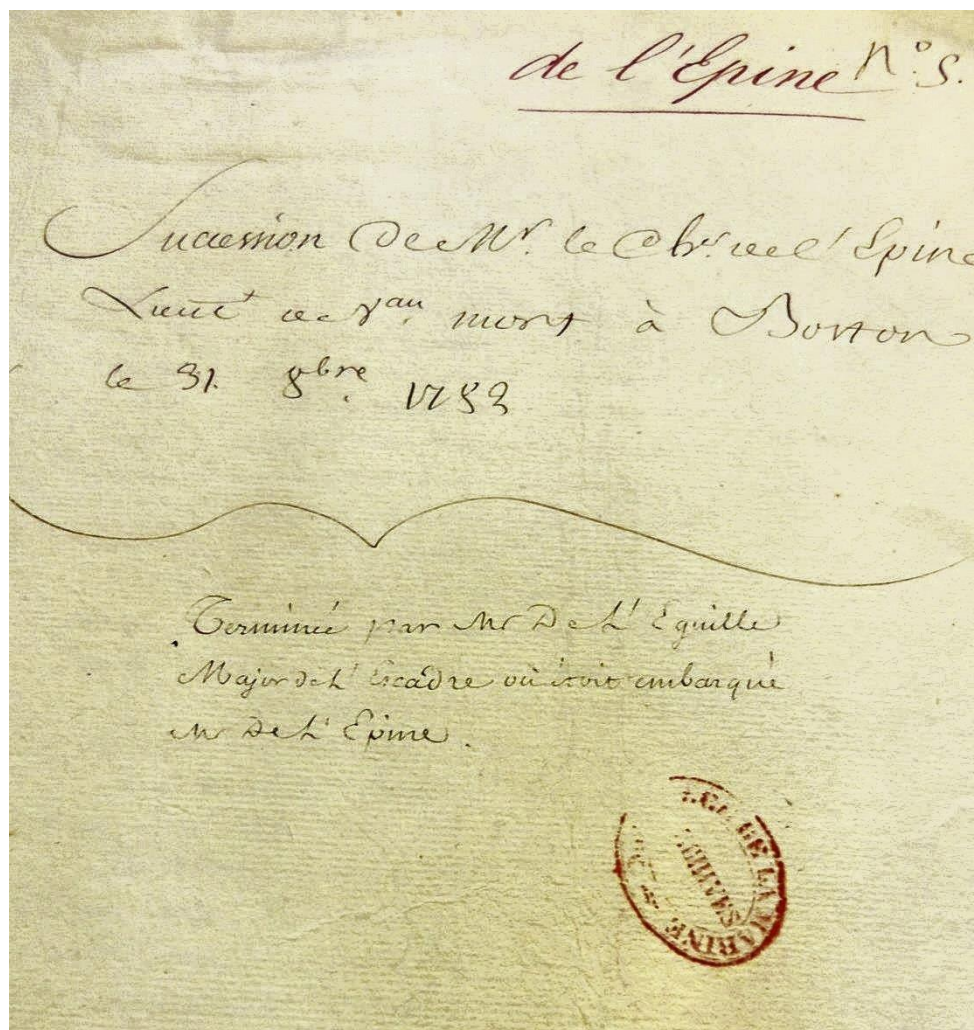 de l'Epine n° 5.
Succession De Mr. le Chr. de l'Epine
Lieut de Vau. mort à Boston
le 31. 8bre. 1782
Terminée par Mr De L'Eguille
Major de L'Escadre où étoit embarqué
Mr De L'Epine.
DE LA MARINE
ARCHIVES